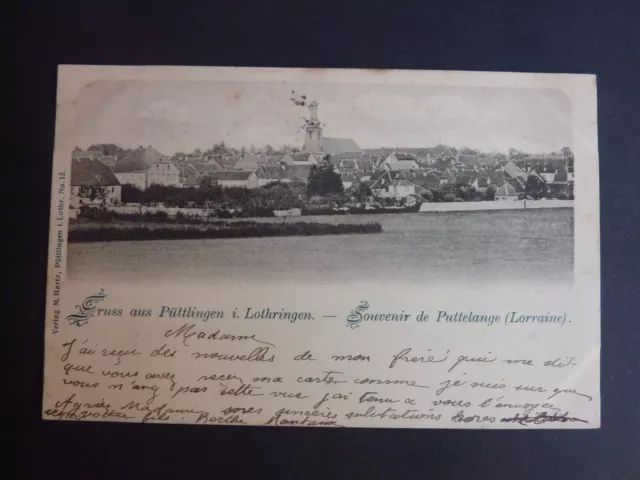 Verlag M. Bartz, Püttlingen i. Lothr. No. 12.
Gruss aus Püttlingen i. Lothringen. — Souvenir de Puttelange (Lorraine).
Madame
J'ai reçu des nouvelles de mon frère qui me dit
que vous avez recu ma carte comme je suis sur que
vous n'anq pas cette vue j'ai tenu a vous l'envoyer
Agréez Madame mes sincères salutations
votre fils. Berthe